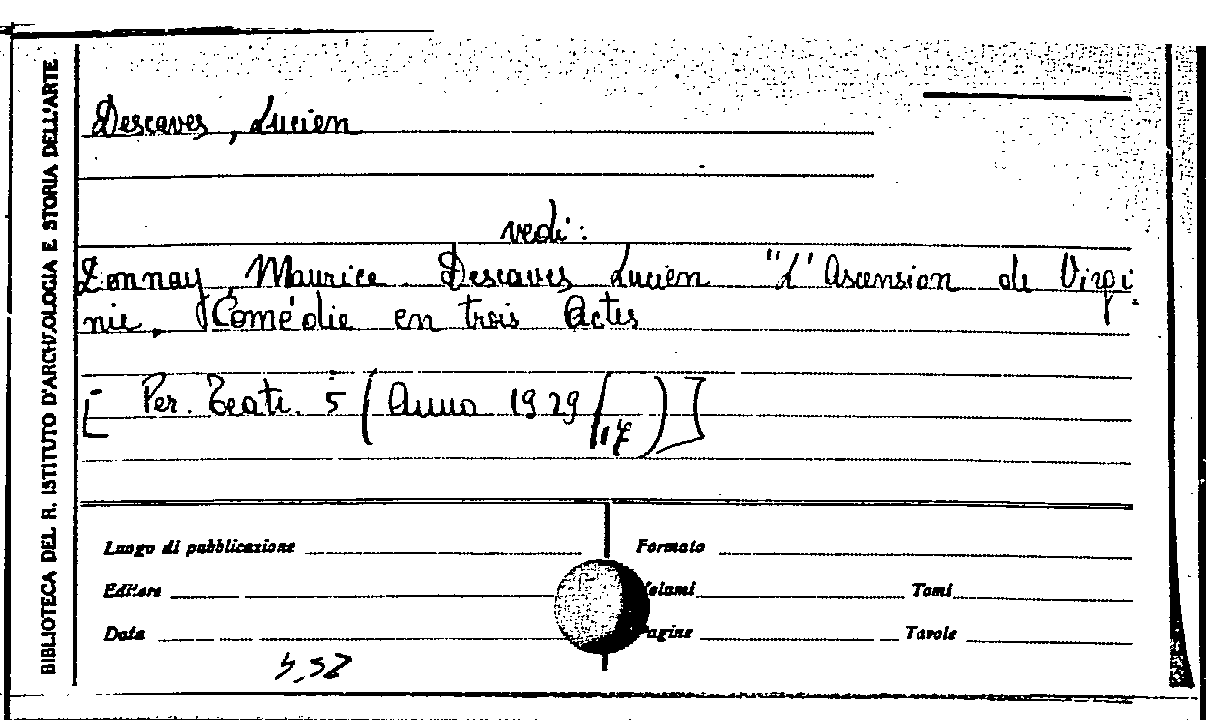 BIBLIOTECA DEL R. ISTITUTO D'ARCHEOLOGIA E STORIA DELL'ARTE
Descaves, Lucien
vedi:
Donnay, Maurice. Descaves Lucien "L'Ascension de Virgi-
nie, Comédie en trois Actes
[Per. Teatr. 5 (Anno 1929/17)]
Luogo di pubblicazione Formato
Editore Volumi Tomi
Data Pagine Tavole